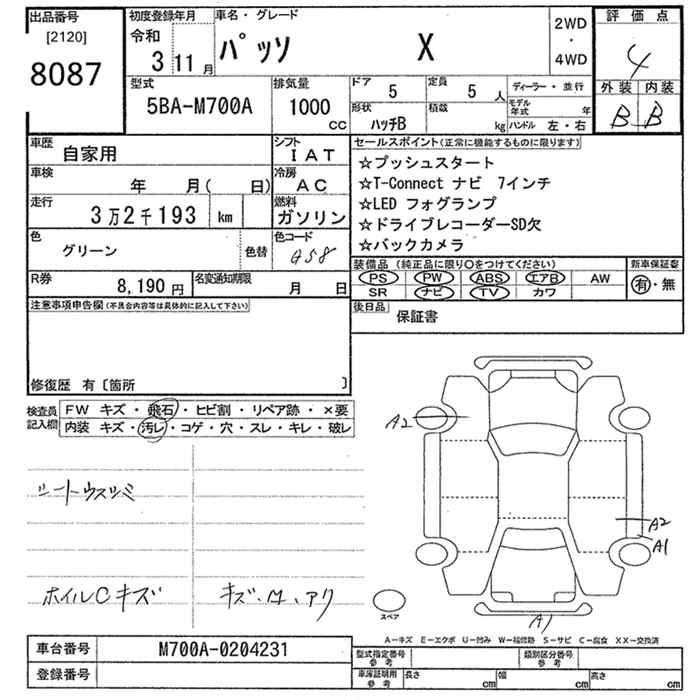 出品番号
[2120]
8087
初度登録年月
令和
3 11月
車名・グレード
パッソ X
2WD
・
4WD
評価点
4
外装 内装
B B
型式
5BA-M700A
排気量
1000
CC
ドア
5
定員
5 人
ディーラー・並行
形状
ハッチB
積載
kg
モデル年式 年
ハンドル 左・右
車歴
自家用
シフト
IAT
車検
年 月( 日)
冷房
AC
走行
3万2千193 km
燃料
ガソリン
色
グリーン
色替
色コード
G58
R券
8,190円
名変通知期限
月 日
セールスポイント(正常に機能するものに限ります)
☆プッシュスタート
☆T-Connect ナビ 7インチ
☆LED フォグランプ
☆ドライブレコーダーSD欠
☆バックカメラ
装備品(純正品に限り○をつけてください)
新車保証書
PS PW ABS エアB AW
SR ナビ TV カワ
有・無
後日品
保証書
注意事項申告欄(不具合内容等は具体的に記入して下さい)
修復歴 有〔箇所 〕
検査員
記入欄
FW キズ・飛石・ヒビ割・リペア跡・×要
内装 キズ・汚レ・コゲ・穴・スレ・キレ・破レ
シートウスシミ
ホイルCキズ
A2
A2
A1
A1
スペア
A-キズ E-エクボ U-凹み W-補修跡 S-サビ C-腐食 XX-交換済
車台番号
M700A-0204231
登録番号
型式指定番号
参考
類別区分番号
参考
車庫証明用
参考
長さ cm
幅 cm
高さ cm